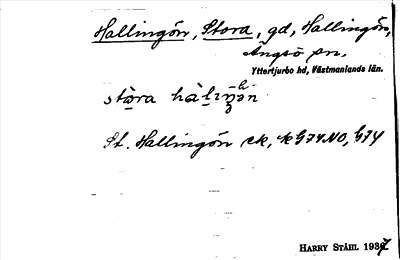 Hallingön, Stora, gd, Hallingön,
Ängsö sn,
Yttertjurbo hd, Västmanlands län.
St. Hallingön ek, k G74NO, G74
HARRY STÅHL 1937